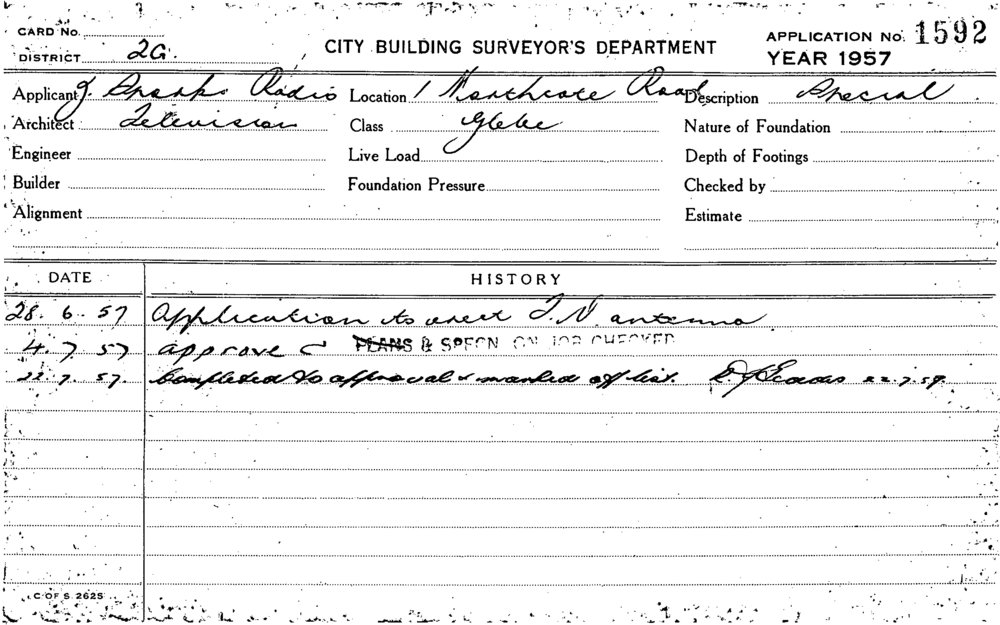 CARD No.
DISTRICT 2G.
CITY BUILDING SURVEYOR'S DEPARTMENT
APPLICATION No. 1592
YEAR 1957
Applicant J. Sparks Radio Location 1 Northcote Road Description Special
Architect Television Class Glebe Nature of Foundation
Engineer Live Load Depth of Footings
Builder Foundation Pressure Checked by
Alignment Estimate
DATE HISTORY
28. 6. 57 Application to erect T.V. antenna
4. 7. 57 approve PLANS & SPECN ON JOB CHECKED
22. 7. 57. Completed to approval & marked off list. 22.7.57.
C OF S 2625